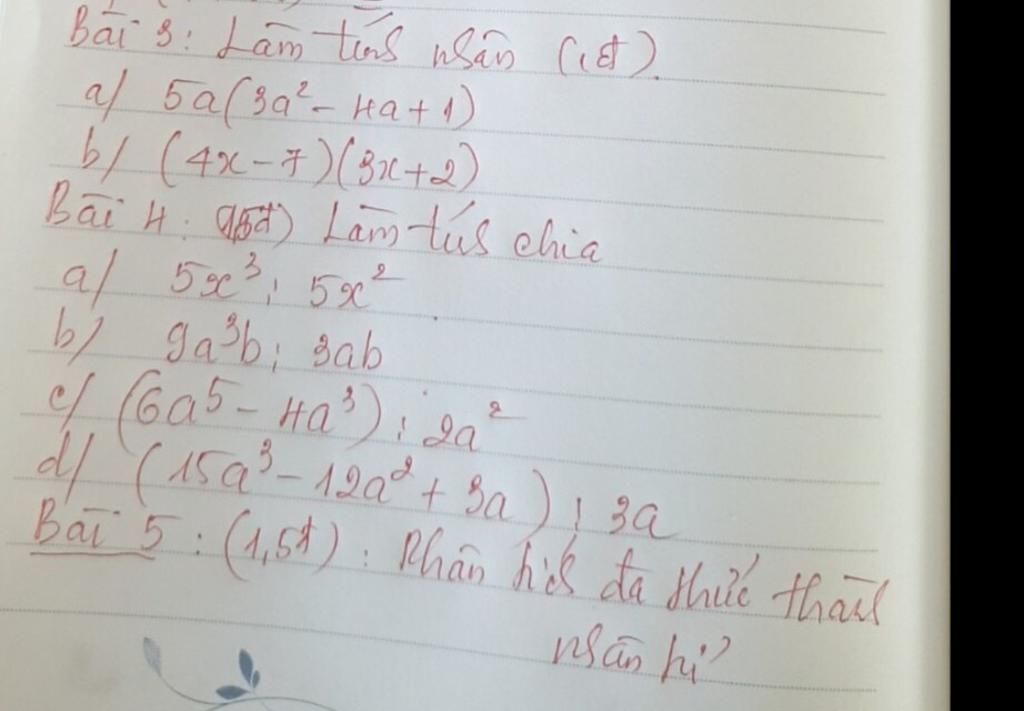 Bài 3: Làm tính nhân (1đ).
a/ 5a(3a² - 4a + 1)
b/ (4x - 7)(3x + 2)
Bài 4: (1,5đ) Làm tính chia
a/ 5x³ : 5x²
b/ 9a³b : 3ab
c/ (6a⁵ - 4a³) : 2a²
d/ (15a³ - 12a² + 3a) : 3a
Bài 5: (1,5đ): Phân tích đa thức thành
nhân tử